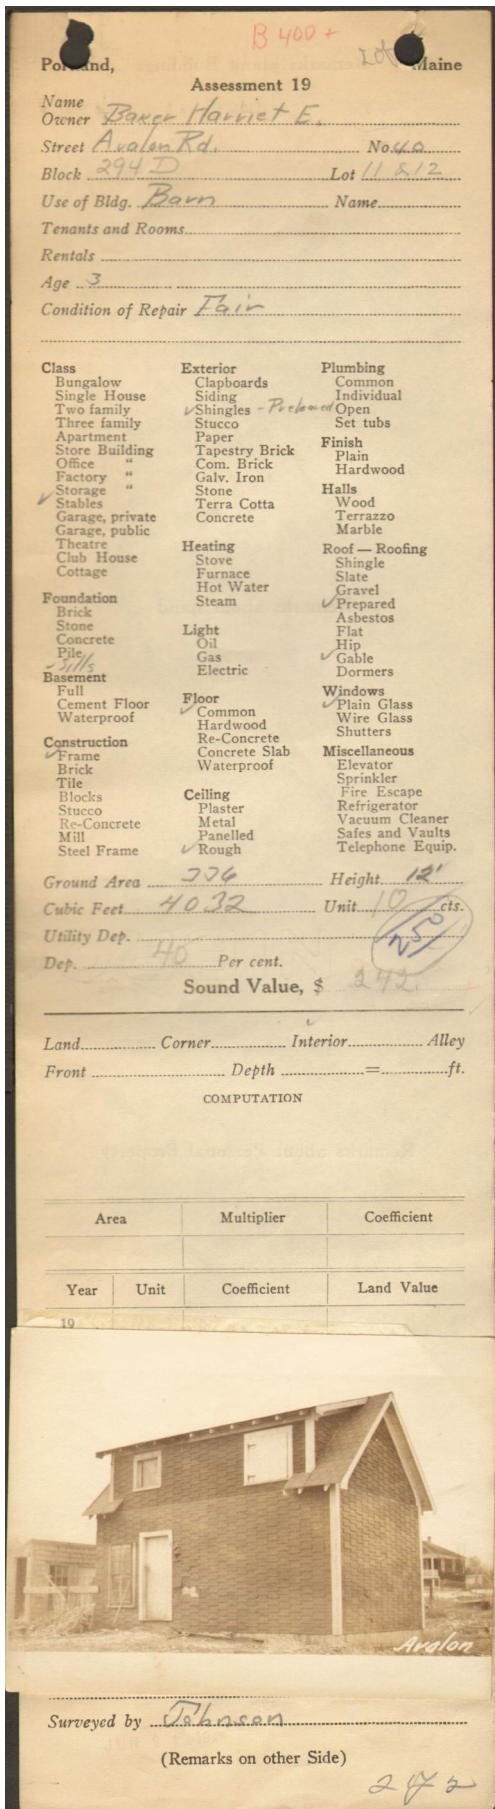 B 400+
Portland, Maine
Assessment 19
Name
Owner Baker Harriet E.
Street Avalon Rd. No. 40
Block 294 D Lot 11 & 12
Use of Bldg. Barn Name
Tenants and Rooms
Rentals
Age 3
Condition of Repair Fair
Class
Bungalow
Single House
Two family
Three family
Apartment
Store Building
Office "
Factory "
Storage "
✓ Stables
Garage, private
Garage, public
Theatre
Club House
Cottage
Foundation
Brick
Stone
Concrete
Pile
- Sills
Basement
Full
Cement Floor
Waterproof
Construction
✓ Frame
Brick
Tile
Blocks
Stucco
Re-Concrete
Mill
Steel Frame
Exterior
Clapboards
Siding
✓ Shingles -
Stucco
Paper
Tapestry Brick
Com. Brick
Galv. Iron
Stone
Terra Cotta
Concrete
Heating
Stove
Furnace
Hot Water
Steam
Light
Oil
Gas
Electric
Floor
✓ Common
Hardwood
Re-Concrete
Concrete Slab
Waterproof
Ceiling
Plaster
Metal
Panelled
✓ Rough
Plumbing
Common
Individual
Open
Set tubs
Finish
Plain
Hardwood
Halls
Wood
Terrazzo
Marble
Roof — Roofing
Shingle
Slate
Gravel
✓ Prepared
Asbestos
Flat
Hip
✓ Gable
Dormers
Windows
✓ Plain Glass
Wire Glass
Shutters
Miscellaneous
Elevator
Sprinkler
Fire Escape
Refrigerator
Vacuum Cleaner
Safes and Vaults
Telephone Equip.
Ground Area 336 Height 12'
Cubic Feet 4032 Unit 10 cts.
Utility Dep. 250
Dep. 40 Per cent.
Sound Value, $ 242
Land Corner Interior Alley
Front Depth = ft.
COMPUTATION
Area Multiplier Coefficient
Year Unit Coefficient Land Value
19
Avalon
Surveyed by Johnson
(Remarks on other Side)